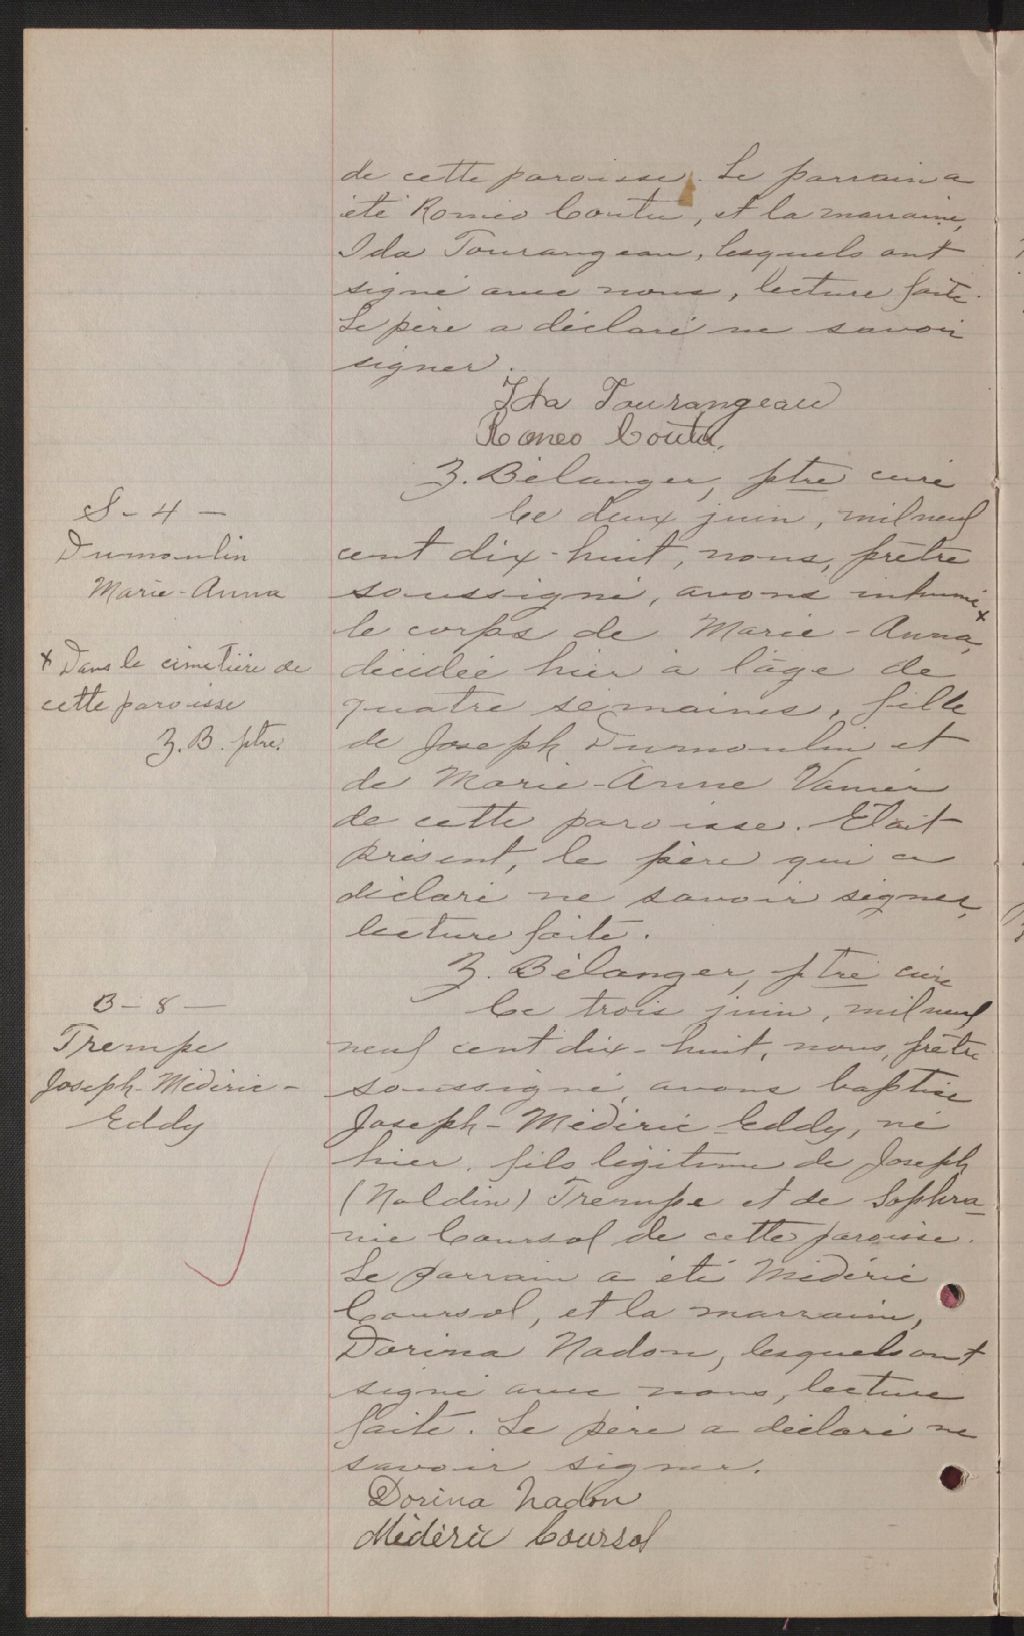 de cette paroisse. Le parrain a
été Roméo Coutu, et la marraine,
Ida Tourangeau, lesquels ont
signé avec nous, lecture faite.
Le père a déclaré ne savoir
signer.
Ida Tourangeau
Romeo Coutu.
Z. Bélanger, ptre curé
S - 4 -
Dumoulin
Marie-Anna
Le deux juin, mil neuf
cent dix-huit, nous, prêtre
soussigné, avons inhumé x
le corps de Marie-Anna,
décédée hier à l'âge de
quatre semaines, fille
de Joseph Dumoulin et
de Marie-Anne Vanier
de cette paroisse. Etait
présent, le père qui a
déclaré ne savoir signer,
lecture faite.
x Dans le cimetière de
cette paroisse
Z. B. ptre.
Z. Bélanger, ptre curé
B - 8 -
Trempe
Joseph-Médéric-
Eddy
Le trois juin, mil neuf
neuf cent dix-huit, nous, prêtre
soussigné, avons baptisé
Joseph-Médéric-Eddy, né
hier, fils légitime de Joseph
(Noldin) Trempe et de Sophro-
nie Coursol de cette paroisse.
Le parrain a été Médéric
Coursol, et la marraine,
Dorina Nadon, lesquels ont
signé avec nous, lecture
faite. Le père a déclaré ne
savoir signer.
Dorina Nadon
Médéric Coursol